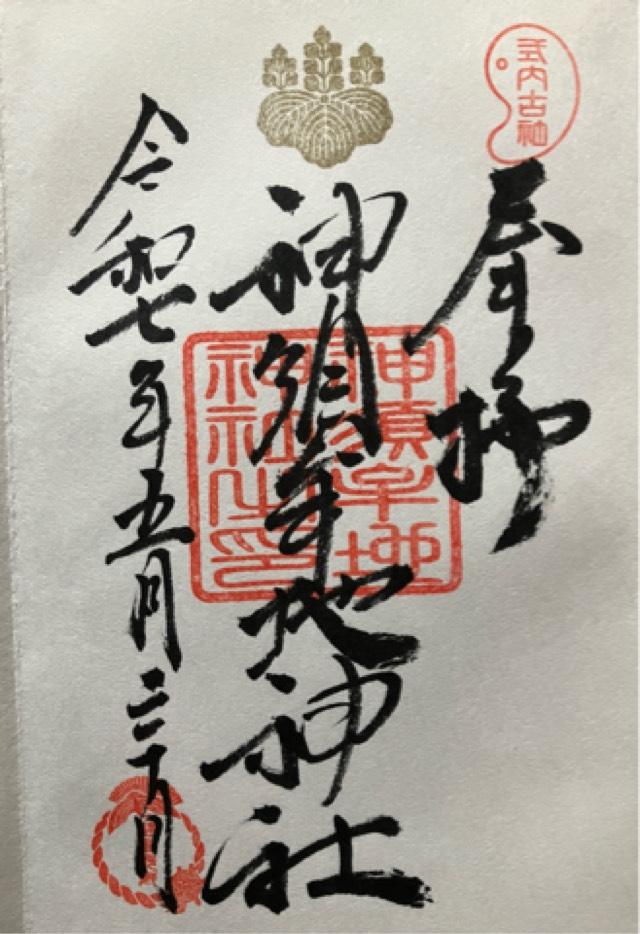 式内古
奉拝
神須牟地神社
神須牟地
神社之印
令和七年五月